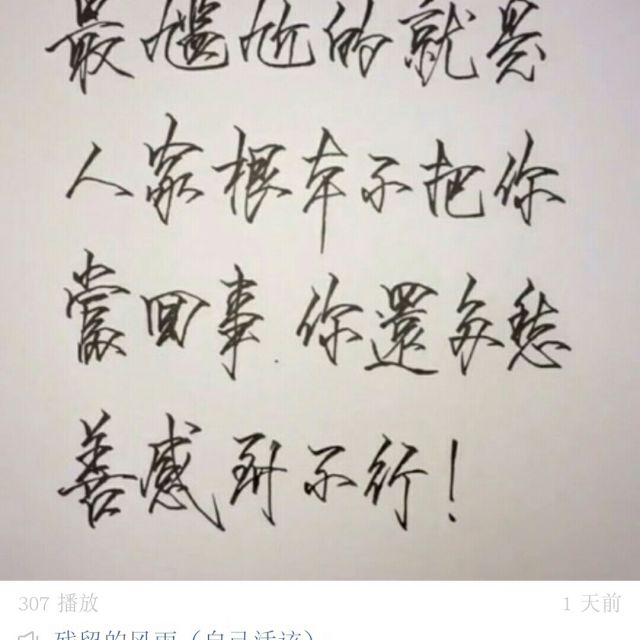 最尷尬的就是
人家根本不把你
當回事.你還多愁
善感到不行！
307 播放 1 天前
残留的风雨（自己活该）